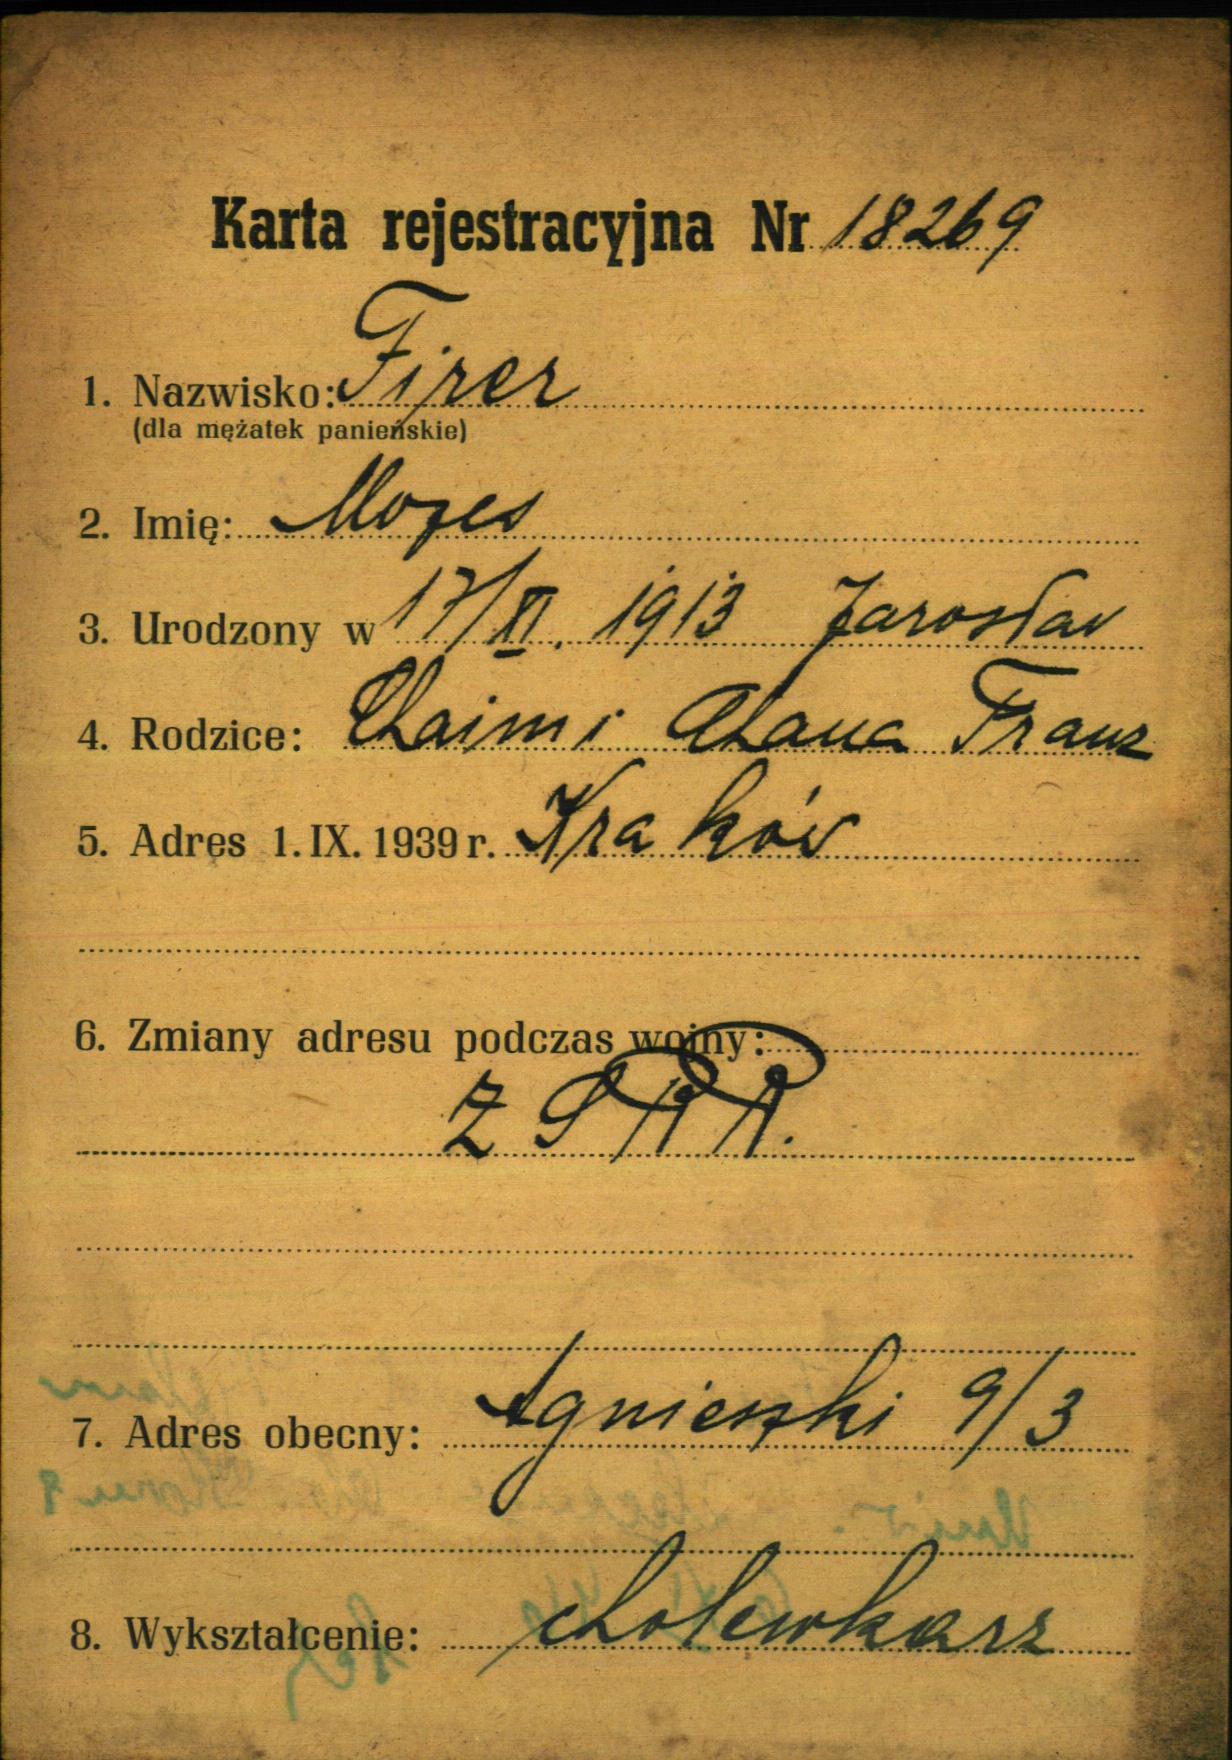 Karta rejestracyjna Nr 18269
1. Nazwisko: Firer
(dla mężatek panieńskie)
2. Imię: Mozes
3. Urodzony w 17/XI. 1913 Jarosław
4. Rodzice: Chaim i Chana Franz
5. Adres 1. IX. 1939 r. Kraków
6. Zmiany adresu podczas wojny:
Z S R R.
7. Adres obecny: Agnieszki 9/3
8. Wykształcenie: cholewkarz